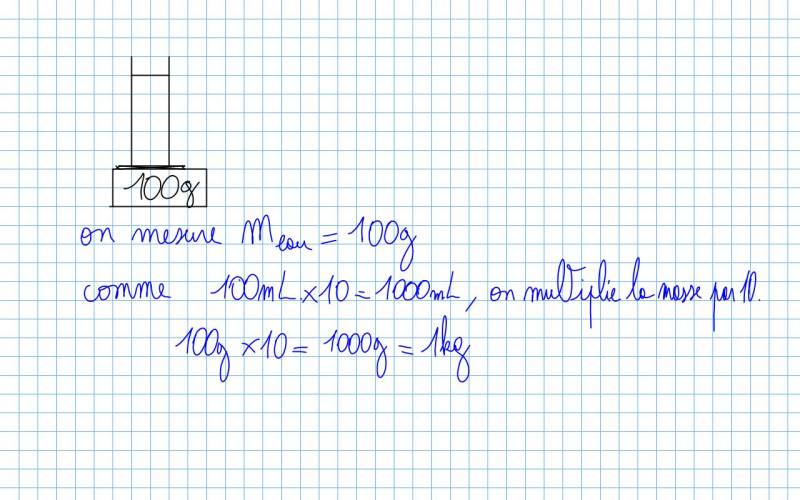 100g
on mesure m eau = 100g
comme 100mL × 10 = 1000mL, on multiplie la masse par 10.
100g × 10 = 1000g = 1kg